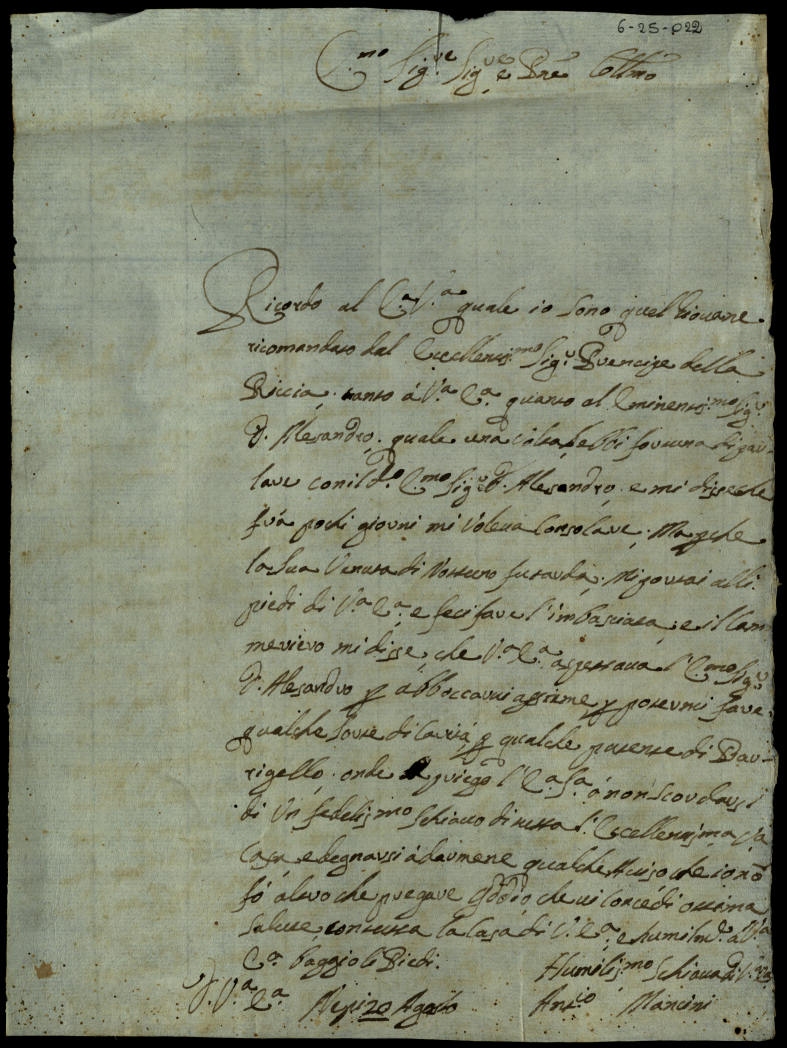 6-25-P22
E.mo Sig.re Sig.re e Pne Collmo
Ricordo al E.a V.a quale io sono quel Giovane
ricomandato dal Eccellentis.mo Sig.r Prencipe della
Riccia, tanto á V.a E.a quanto al Eminentis.mo Sig.r
D. Alesandro, quale una volta hebbi fortuna di par-
lare con il d.o E.mo Sig.r D. Alesandro, e mi disse che
frá pochi giorni mi voleva Consolare; Ma perche
la sua Venuta di Nostro fu tarda, mi portai alli
piedi di V.a E.a e feci fare l'imbasciata, e il Cam
meriero mi disse, che V.a E.a aspettava l'E.mo Sig.r
D. Alesandro p abboccarsi assieme p potermi fare
qualche sorte di Carità, p qualche patente di
rigello, onde priego l'E.a S.a á non scordarsi
di Un fedelis.mo Schiavo di tutta l'Eccellentissima Sua
Casa, e degnarsi á darmene qualche Aviso che io nō
fó altro che pregare Iddio che vi Concedi ottima
salute con tutta la Casa di V.a E.a e humilm.e a V.a
E.a baggio li Piedi.
D. V.a E.a Nepi 20 Agosto
Humilis.mo Schiavo di V.a
Ant.io Mancini